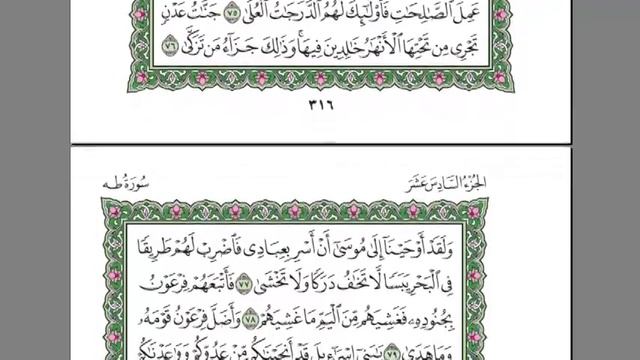 عَمِلَ ٱلصَّٰلِحَٰتِ فَأُو۟لَٰٓئِكَ لَهُمُ ٱلدَّرَجَٰتُ ٱلْعُلَىٰ ٧٥ جَنَّٰتُ عَدْنٍ
تَجْرِى مِن تَحْتِهَا ٱلْأَنْهَٰرُ خَٰلِدِينَ فِيهَا ۚ وَذَٰلِكَ جَزَآءُ مَن تَزَكَّىٰ ٧٦
٣١٦
الجُزْءُ السَّادِسَ عَشَرَ
سُورَةُ طه
وَلَقَدْ أَوْحَيْنَآ إِلَىٰ مُوسَىٰٓ أَنْ أَسْرِ بِعِبَادِى فَٱضْرِبْ لَهُمْ طَرِيقًا
فِى ٱلْبَحْرِ يَبَسًا لَّا تَخَٰفُ دَرَكًا وَلَا تَخْشَىٰ ٧٧ فَأَتْبَعَهُمْ فِرْعَوْنُ
بِجُنُودِهِۦ فَغَشِيَهُم مِّنَ ٱلْيَمِّ مَا غَشِيَهُمْ ٧٨ وَأَضَلَّ فِرْعَوْنُ قَوْمَهُۥ
وَمَا هَدَىٰ ٧٩ يَٰبَنِىٓ إِسْرَٰٓءِيلَ قَدْ أَنجَيْنَٰكُم مِّنْ عَدُوِّكُمْ وَوَٰعَدْنَٰكُمْ